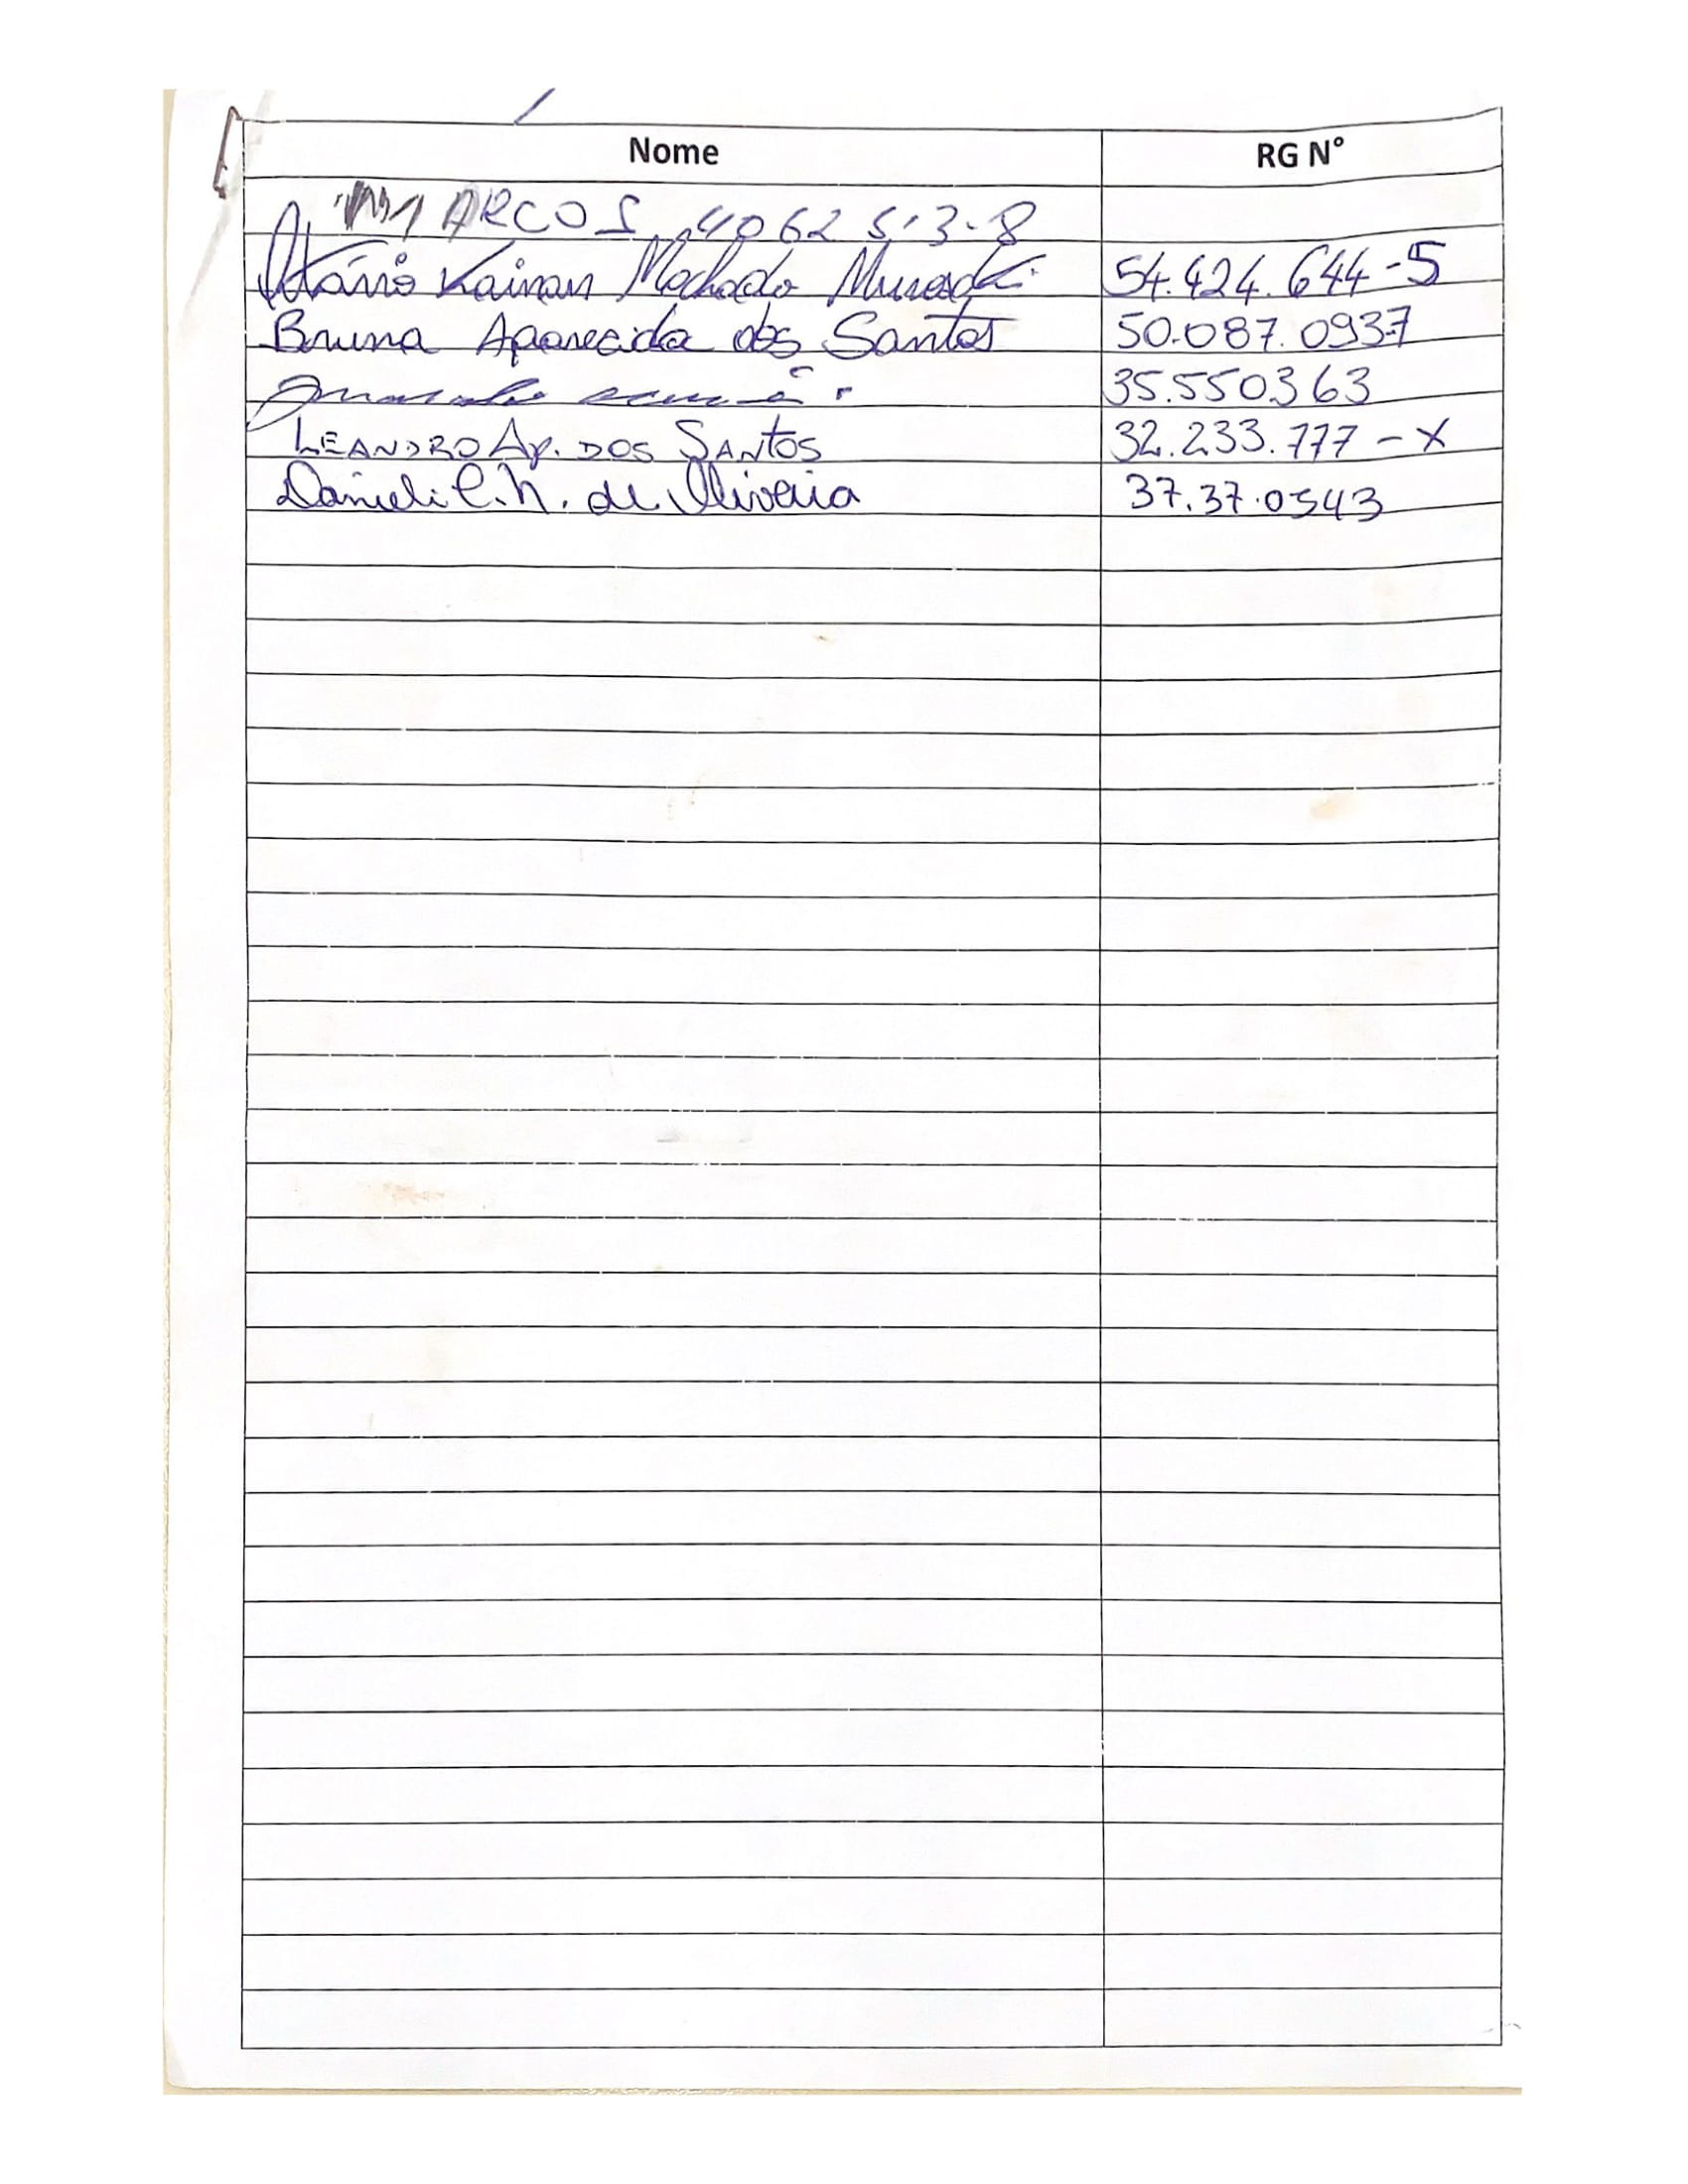 Nome RG N°
MARCOS 4062513-8
Otávio Kainan Machado 54.424.644-5
Bruna Aparecida dos Santos 50.087.093-7
35.550.363
LEANDRO Ap. DOS SANTOS 32.233.777-X
Danieli C.N. de Oliveira 37.37.0543